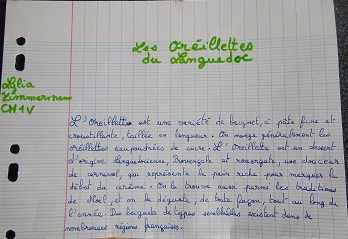 Les Oréillettes
du Languedoc
Lylia
Zimmermann
CM1V
L'Oreillette est une variété de beignet, à pâte fine et
croustillante, taillée en longueur. On mange généralement les
oréillettes saupoudrées de sucre. L'Oreillette est un dessert
d'origine Languedocienne, Provençale et rouergate, une douceur
de carnaval, qui représente le pain riche pour marquer le
début du carême. On la trouve aussi parmi les traditions
de Noël et on la déguste, de toute façon, tout au long de
l'année. Des beignets de types semblables existent dans de
nombreuses régions françaises.